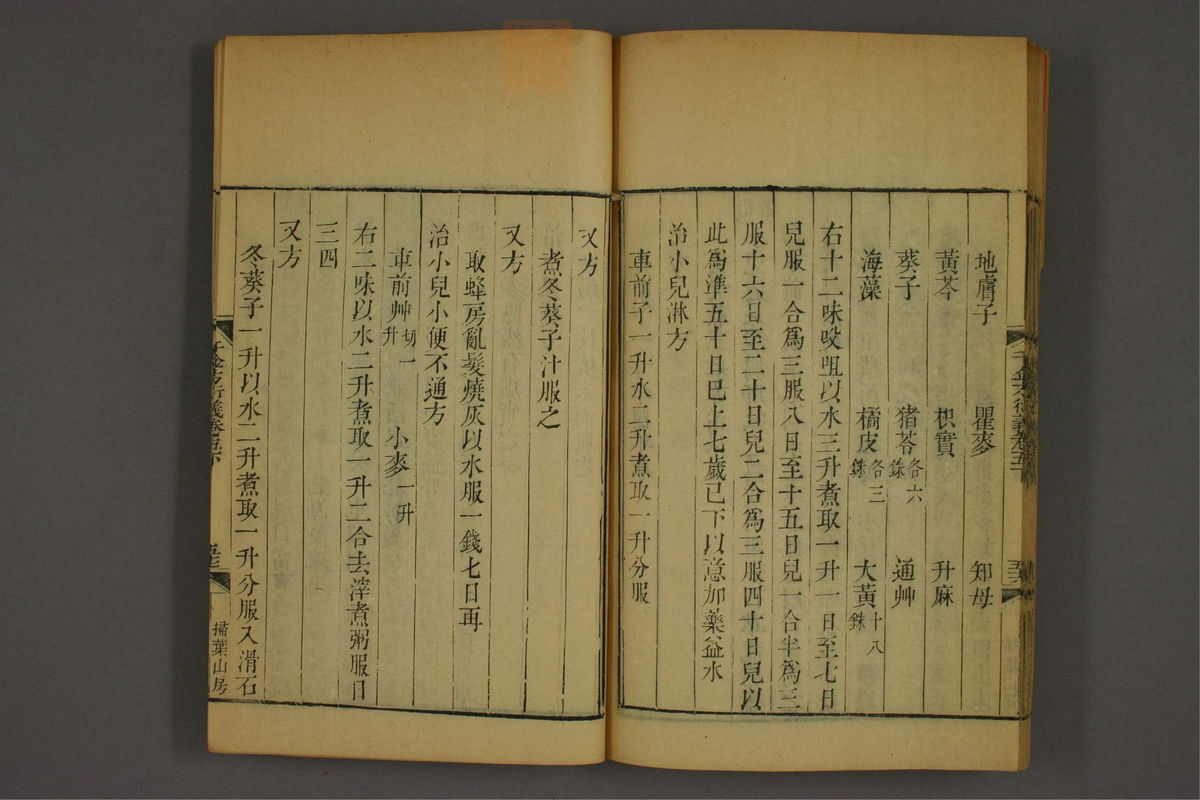 千金方衍義卷五下
地膚子 瞿麥 知母
黃芩 枳實 升麻
葵子 猪苓各六銖 通艸
海藻 橘皮各三銖 大黃十八銖
右十二味㕮咀以水三升煮取一升一日至七日
兒服一合爲三服八日至十五日兒一合半爲三
服十六日至二十日兒二合爲三服四十日兒以
此爲準五十日已上七歲已下以意加藥益水
治小兒淋方
車前子一升水二升煮取一升分服
又方
煮冬葵子汁服之
又方
取蜂房亂髮燒灰以水服一錢七日再
治小兒小便不通方
車前艸切一升 小麥一升
右二味以水二升煮取一升二合去滓煮粥服日
三四
又方
冬葵子一升以水二升煮取一升分服入滑石
千金方衍義卷五下
掃葉山房